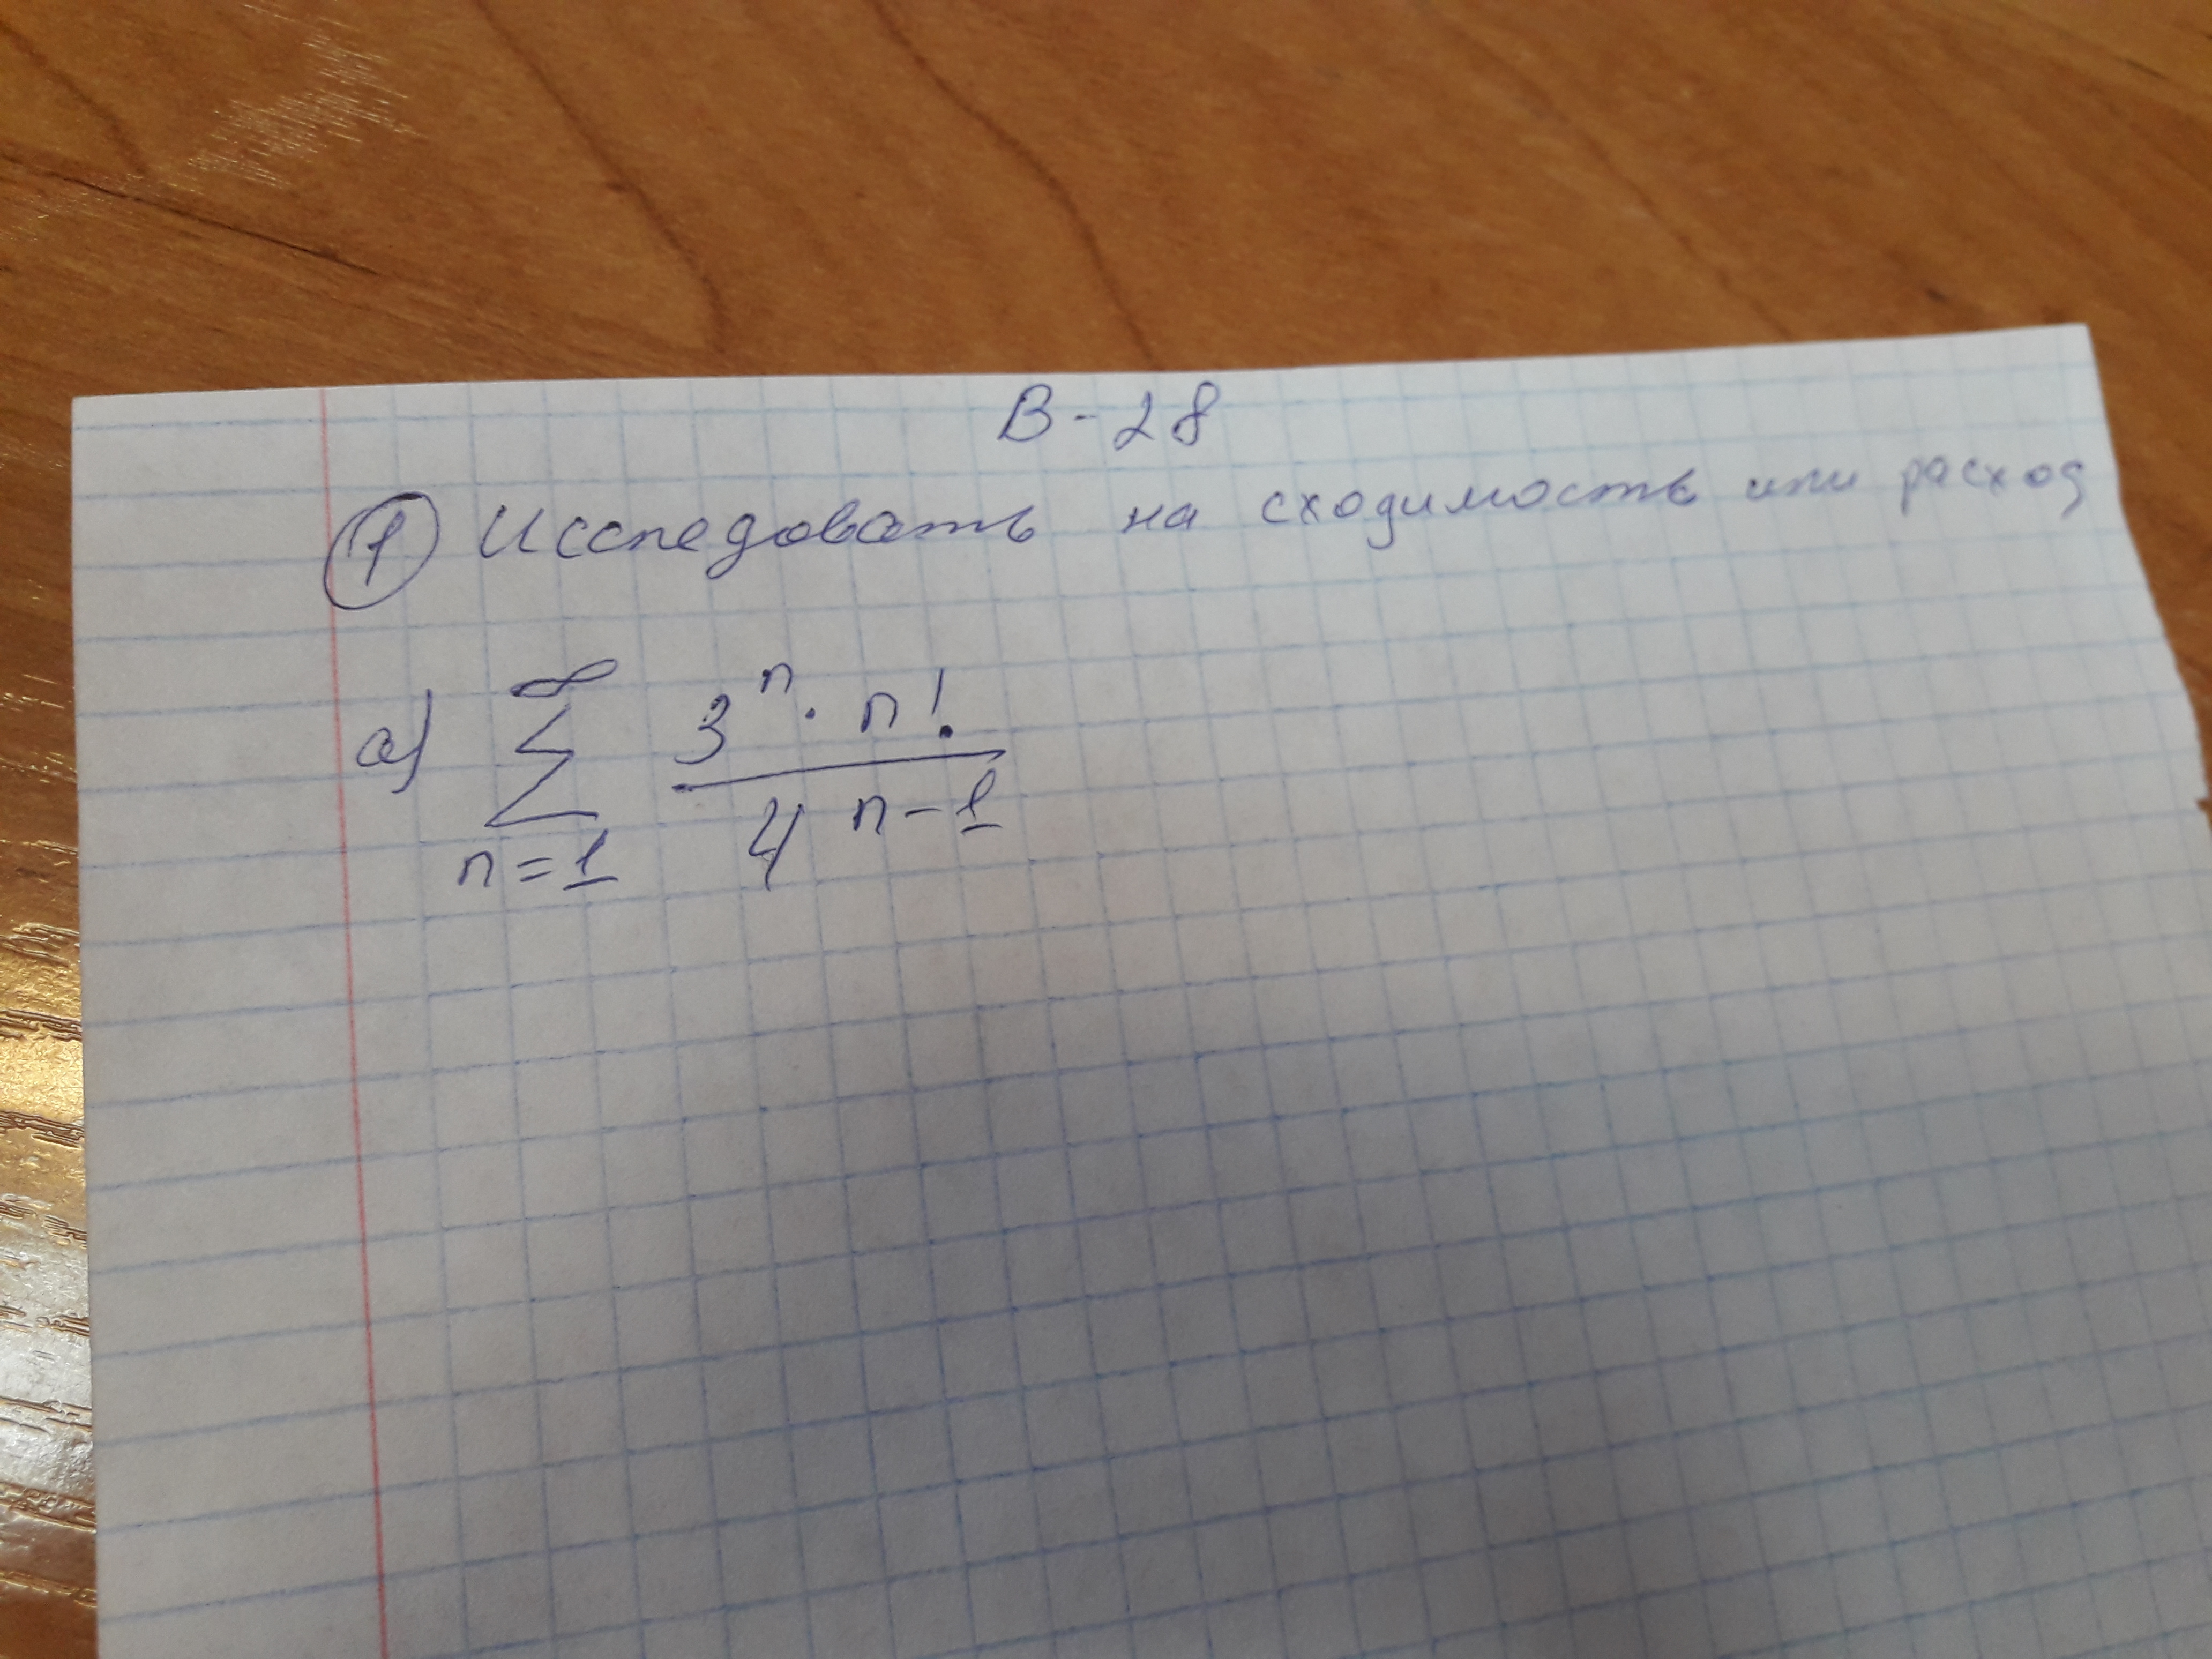 В-28
① Исследовать на сходимость или расход
а) ∞ ∑ n=1 3^n · n! / 4^(n-1)